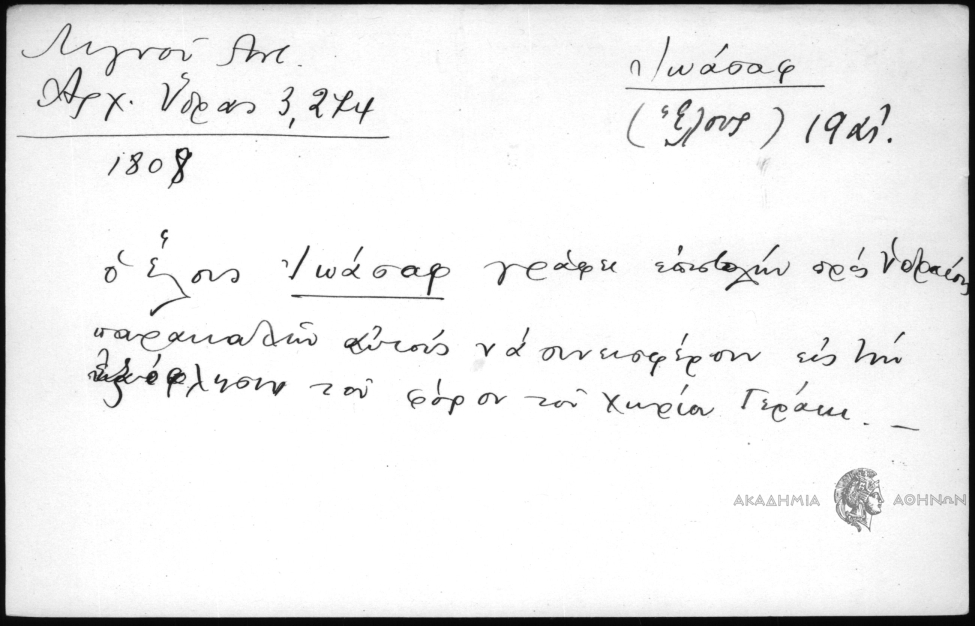 Λιγνού Αντ.
Αρχ. Ύδρας 3, 274
1808
Ἰωάσαφ
(Ἕλους) 19 αἰ.
ὁ Ἕλους Ἰωάσαφ γράφει ἐπιστολήν πρός Ὑδραίους
παρακαλῶν αὐτούς νά συνεισφέρουν εἰς τήν
ἐξόφλησιν τοῦ φόρου τοῦ χωρίου Γεράκι. –
ΑΚΑΔΗΜΙΑ ΑΘΗΝΩΝ